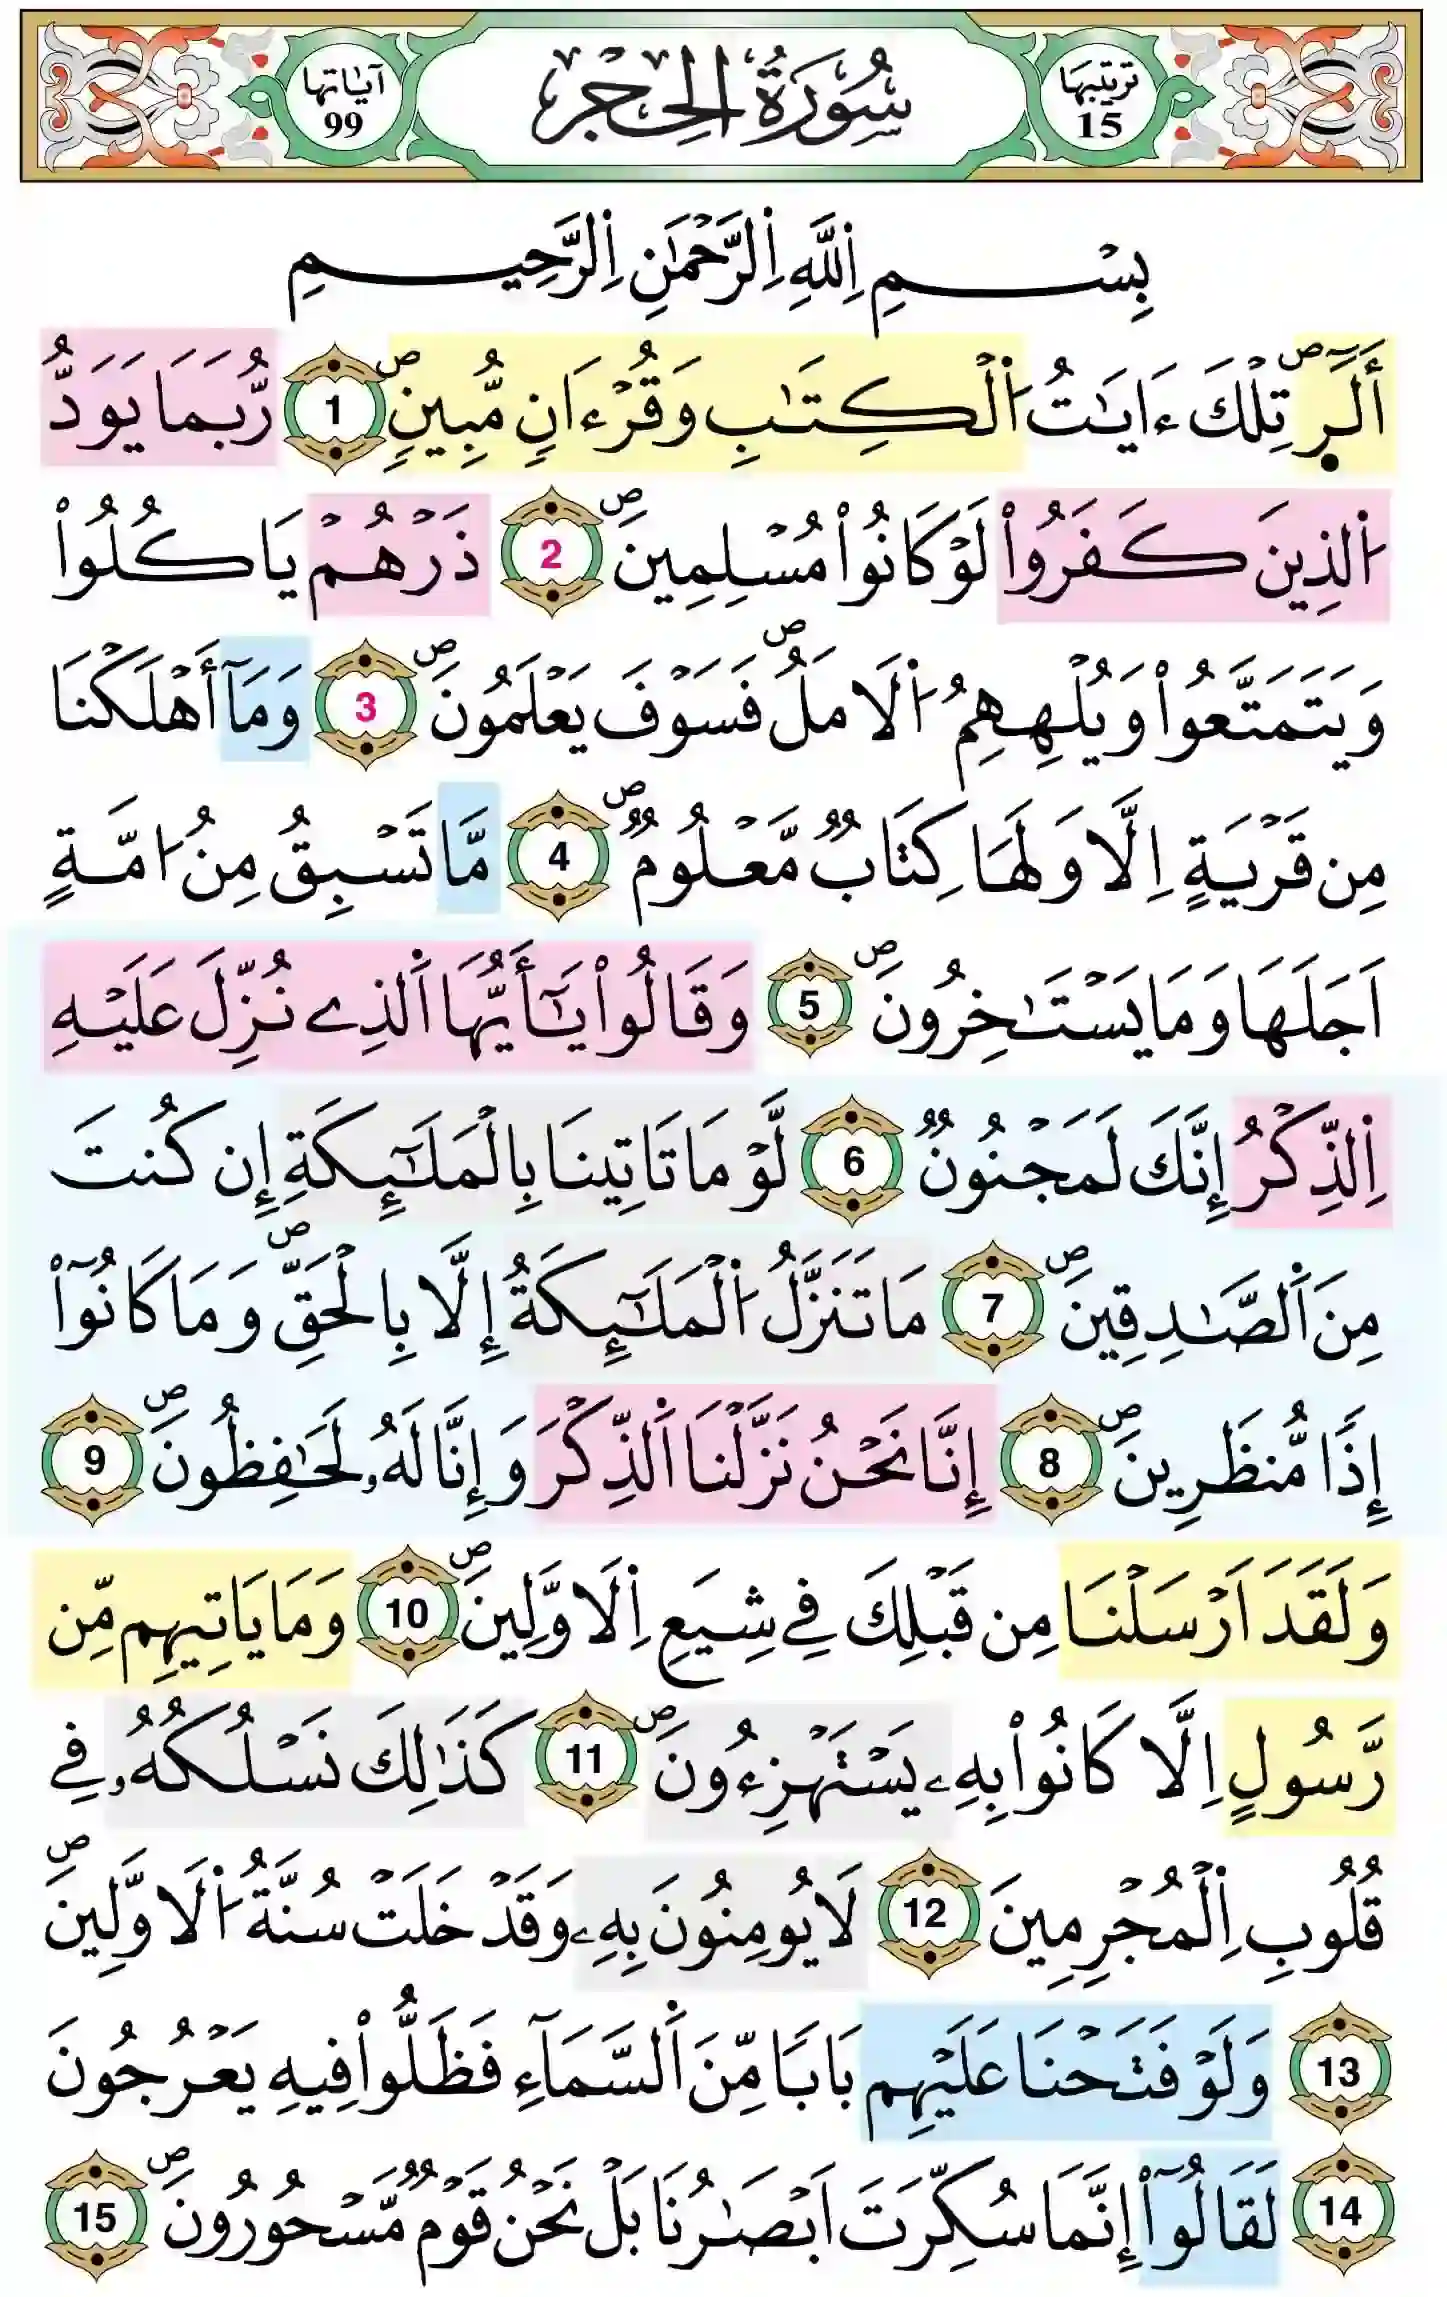 ترتيبها 15
سُورَةُ الحِجْر
آيَاتها 99
بِسْمِ اِللَّهِ اِلرَّحْمَٰنِ اِلرَّحِيمِ
أَلَٓر۪ۖ تِلْكَ ءَايَٰتُ اُ۬لْكِتَٰبِ وَقُرْءَانٖ مُّبِينٖۖ 1 رُّبَمَا يَوَدُّ
اُ۬لذِينَ كَفَرُواْ لَوْ كَانُواْ مُسْلِمِينَۖ 2 ذَرْهُمْ يَاكُلُواْ
وَيَتَمَتَّعُواْ وَيُلْهِهِمُ اُ۬لَامَلُۖ فَسَوْفَ يَعْلَمُونَۖ 3 وَمَآ أَهْلَكْنَا
مِن قَرْيَةٍ اِلَّا وَلَهَا كِتَابٞ مَّعْلُومٞۖ 4 مَّا تَسْبِقُ مِنُ ا۟مَّةٍ
اَجَلَهَا وَمَا يَسْتَٰخِرُونَۖ 5 وَقَالُواْ يَٰٓأَيُّهَا اَ۬لذِے نُزِّلَ عَلَيْهِ
اِ۬لذِّكْرُ إِنَّكَ لَمَجْنُونٞ 6 لَّوْ مَا تَاتِينَا بِالْمَلَٰٓئِكَةِ إِن كُنتَ
مِنَ اَ۬لصَّٰدِقِينَۖ 7 مَا تَنَزَّلُ اُ۬لْمَلَٰٓئِكَةُ إِلَّا بِالْحَقِّۖ وَمَا كَانُوٓاْ
إِذاٗ مُّنظَرِينَۖ 8 إِنَّا نَحْنُ نَزَّلْنَا اَ۬لذِّكْرَ وَإِنَّا لَهُۥ لَحَٰفِظُونَۖ 9
وَلَقَدَ اَرْسَلْنَا مِن قَبْلِكَ فِے شِيَعِ اِ۬لَاوَّلِينَۖ 10 وَمَا يَاتِيهِم مِّن
رَّسُولٍ اِلَّا كَانُواْ بِهِۦ يَسْتَهْزِءُونَۖ 11 كَذَٰلِكَ نَسْلُكُهُۥ فِے
قُلُوبِ اِ۬لْمُجْرِمِينَ 12 لَا يُومِنُونَ بِهِۦ وَقَدْ خَلَتْ سُنَّةُ اُ۬لَاوَّلِينَۖ
13 وَلَوْ فَتَحْنَا عَلَيْهِم بَاباٗ مِّنَ اَ۬لسَّمَآءِ فَظَلُّواْ فِيهِ يَعْرُجُونَ
14 لَقَالُوٓاْ إِنَّمَا سُكِّرَتَ اَبْصَٰرُنَا بَلْ نَحْنُ قَوْمٞ مَّسْحُورُونَۖ 15